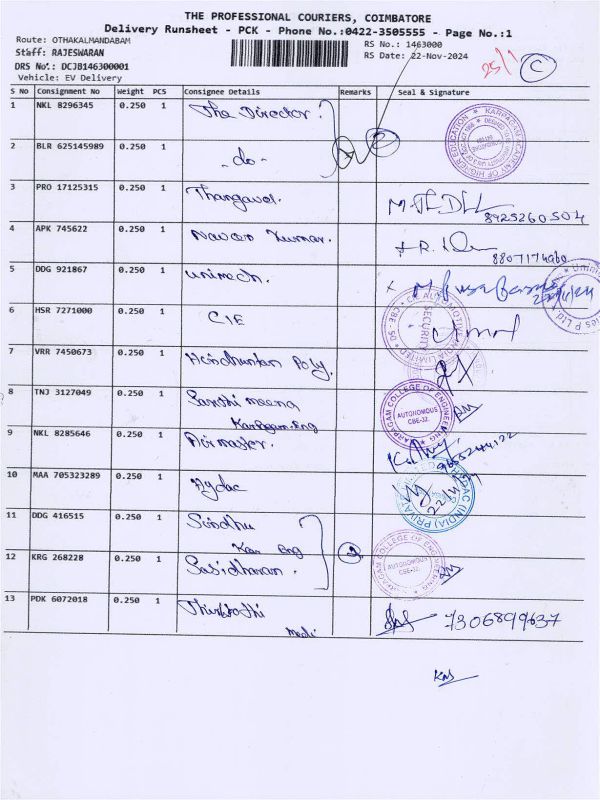 THE PROFESSIONAL COURIERS, COIMBATORE
Delivery Runsheet - PCK - Phone No.:0422-3505555 - Page No.:1
Route: OTHAKALMANDABAM
RS No.: 1463000
Staff: RAJESWARAN
RS Date: 22-Nov-2024
DRS No: DCJB146300001
Vehicle: EV Delivery
25/1
C
S No Consignment No Weight PCS Consignee Details Remarks Seal & Signature
1 NKL 8296345 0.250 1 The Director.
2 BLR 625145989 0.250 1 -do-
KARPAGAM ACADEMY OF HIGHER EDUCATION
3 PRO 17125315 0.250 1 Thangavel.
8925260504
4 APK 745622 0.250 1 Naveen Kumar.
8807174960
5 DDG 921867 0.250 1 Unimech.
6 HSR 7271000 0.250 1 CIE
SECURITY
7 VRR 7450673 0.250 1 Poly
8 TNJ 3127049 0.250 1 Santhi meena
Karpagam Eng
KARPAGAM COLLEGE OF ENGINEERING
AUTONOMOUS
CBE-32.
9 NKL 8285646 0.250 1 Airmaster.
10 MAA 705323289 0.250 1 Hydac
HYDAC (INDIA) PRIVATE
11 DDG 416515 0.250 1 Sindhu
Kar Eng
12 KRG 268228 0.250 1 Sasidharan. 2
KARPAGAM COLLEGE OF ENGINEERING
AUTONOMOUS
CBE-32.
13 PDK 6072018 0.250 1
7306899637